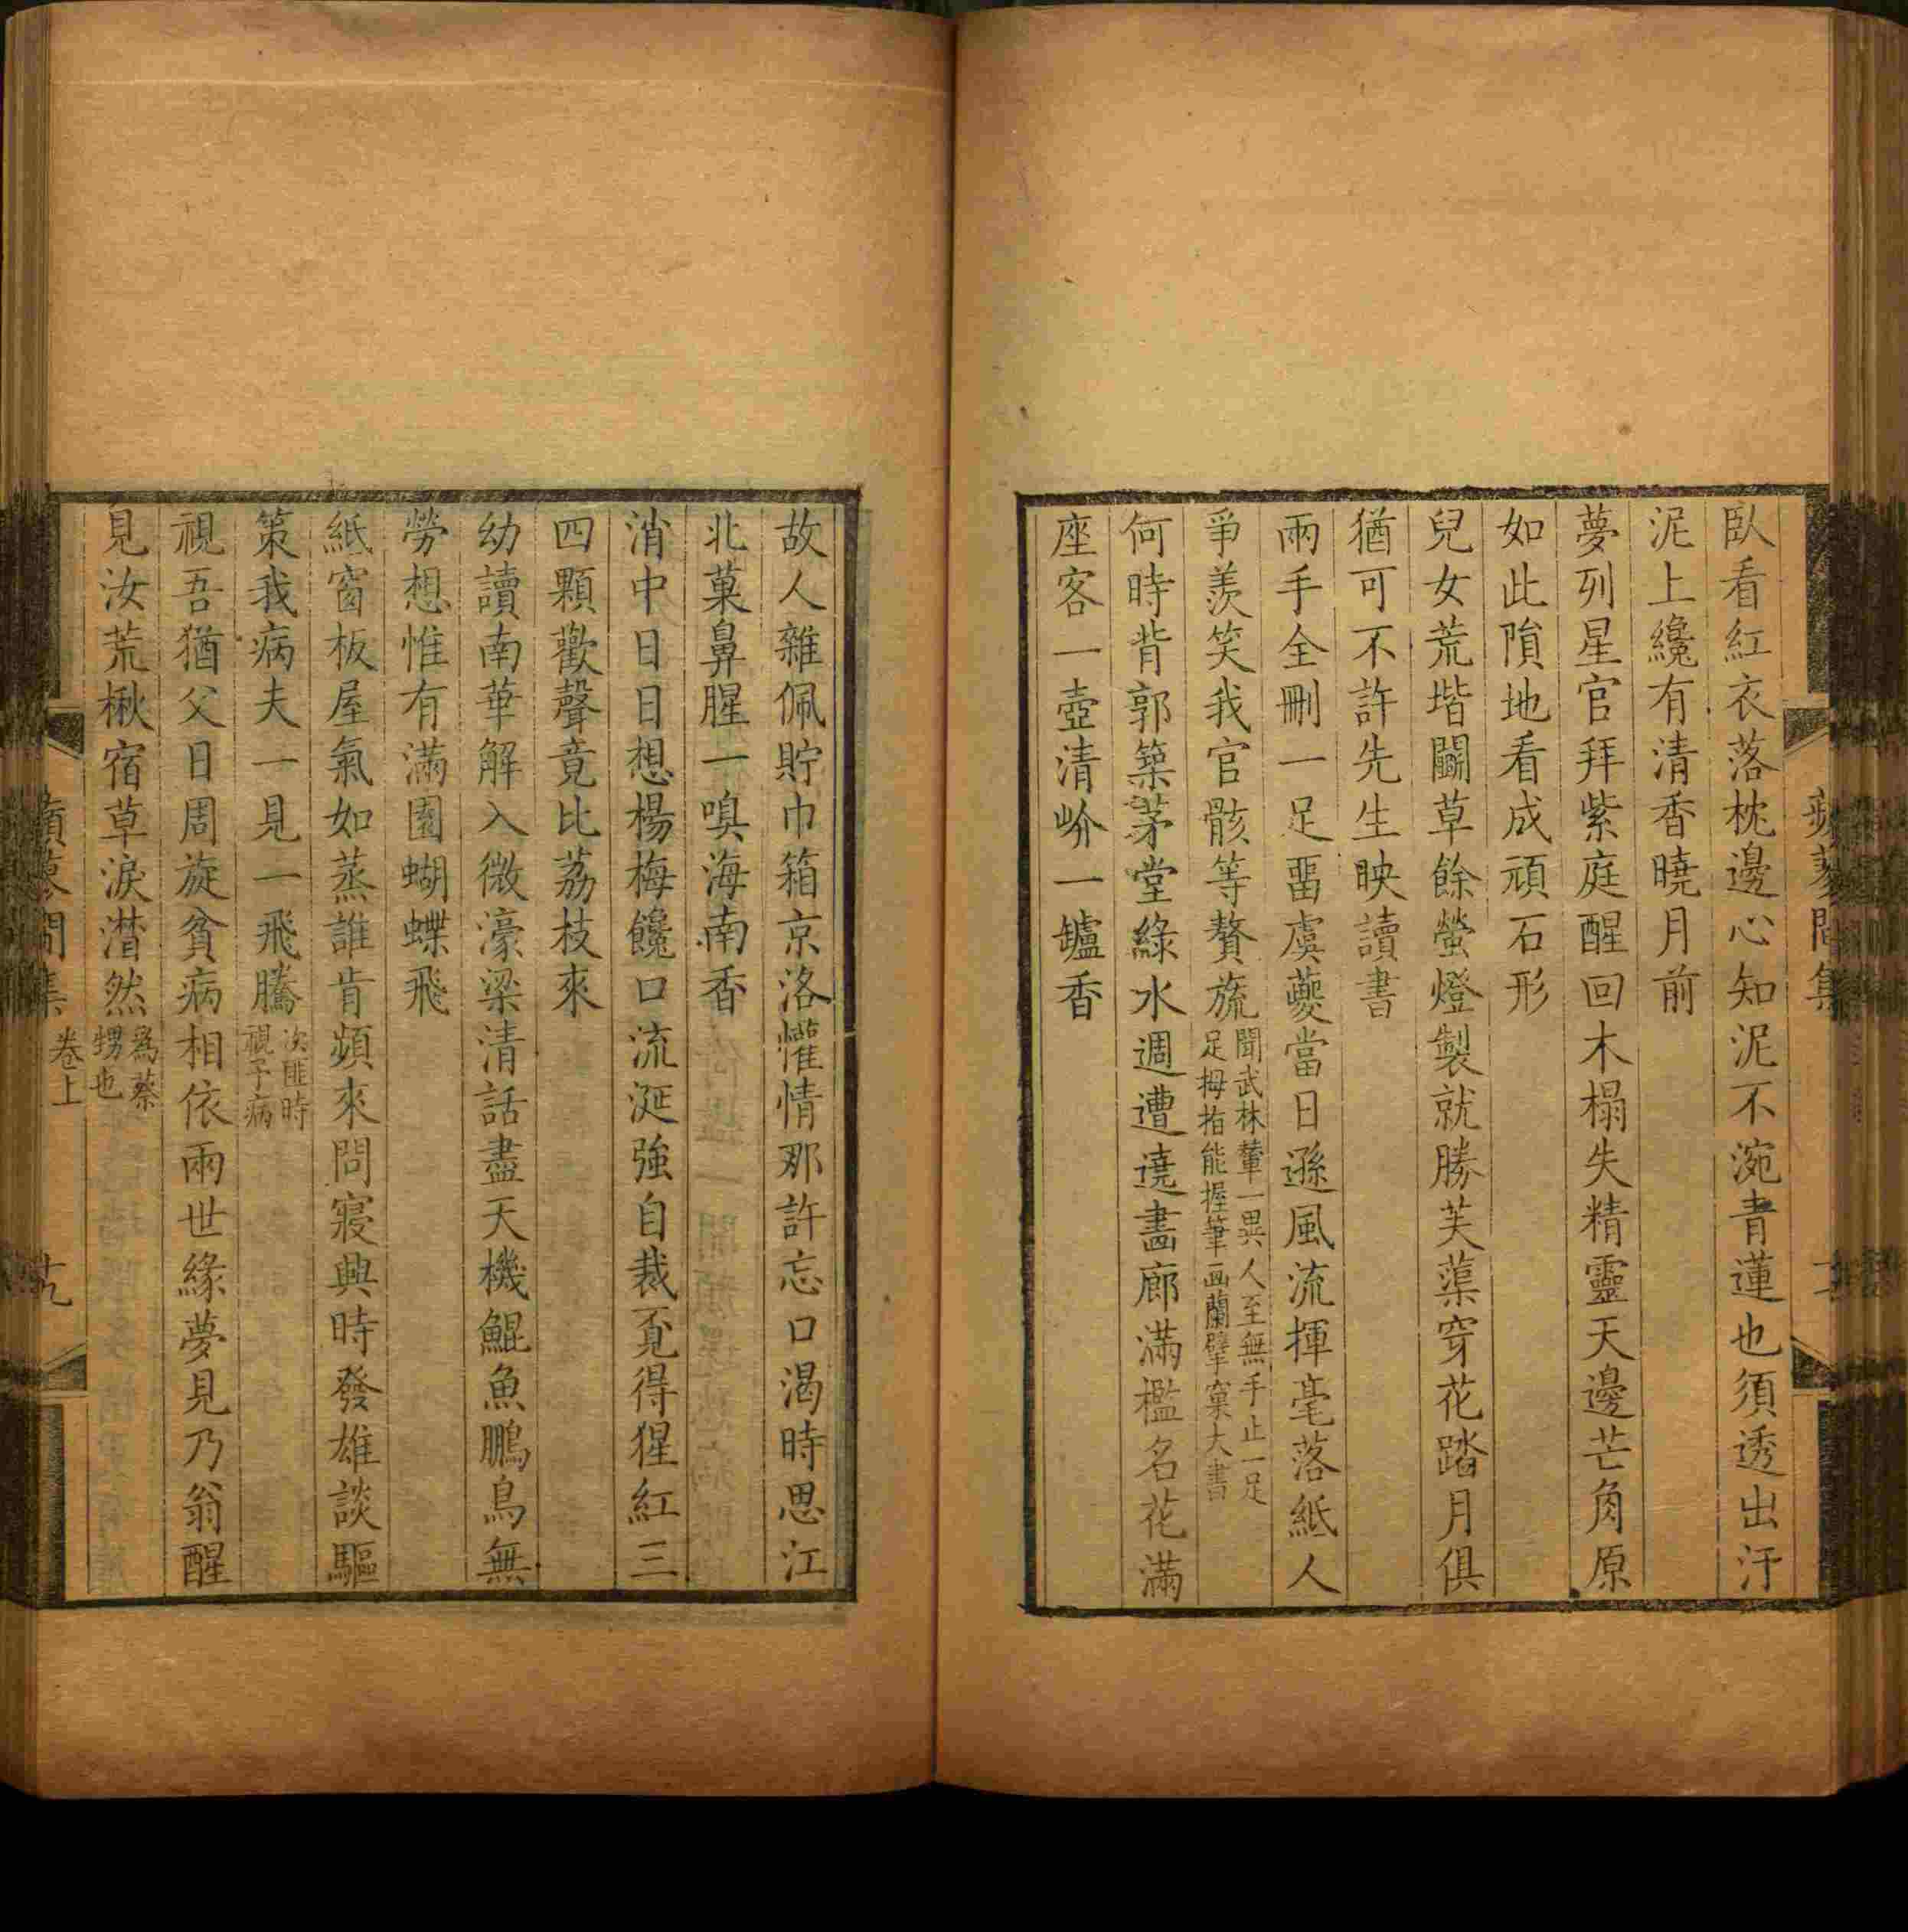 臥看紅衣落枕邊心知泥不涴青蓮也須透出汙
泥上纔有清香曉月前
夢列星官拜紫庭醒回木榻失精靈天邊芒角原
如此隕地看成頑石形
兒女荒堦鬭草餘螢燈製就勝芙蕖穿花踏月俱
猶可不許先生映讀書
兩手全刪一足畱虞夔當日遜風流揮毫落紙人
爭羨笑我官骸等贅旒
聞武林輦一異人至無手止一足
足拇指能握筆画蘭擘窠大書
何時背郭築茅堂綠水週遭遶畵廊滿檻名花滿
座客一壺清岕一罏香
故人雜佩貯巾箱京洛懽情那許忘口渴時思江
北菓鼻腥一嗅海南香
消中日日想楊梅饞口流涎強自裁覔得猩紅三
四顆歡聲竟比荔枝來
幼讀南華解入微濠梁清話盡天機鯤魚鵬鳥無
勞想惟有滿園蝴蝶飛
紙窗板屋氣如蒸誰肯頻來問寢興時發雄談驅
策我病夫一見一飛騰
次匪時
視予病
視吾猶父日周旋貧病相依兩世緣夢見乃翁醒
見汝荒楸宿草淚潸然
爲蔡
甥也
卷上